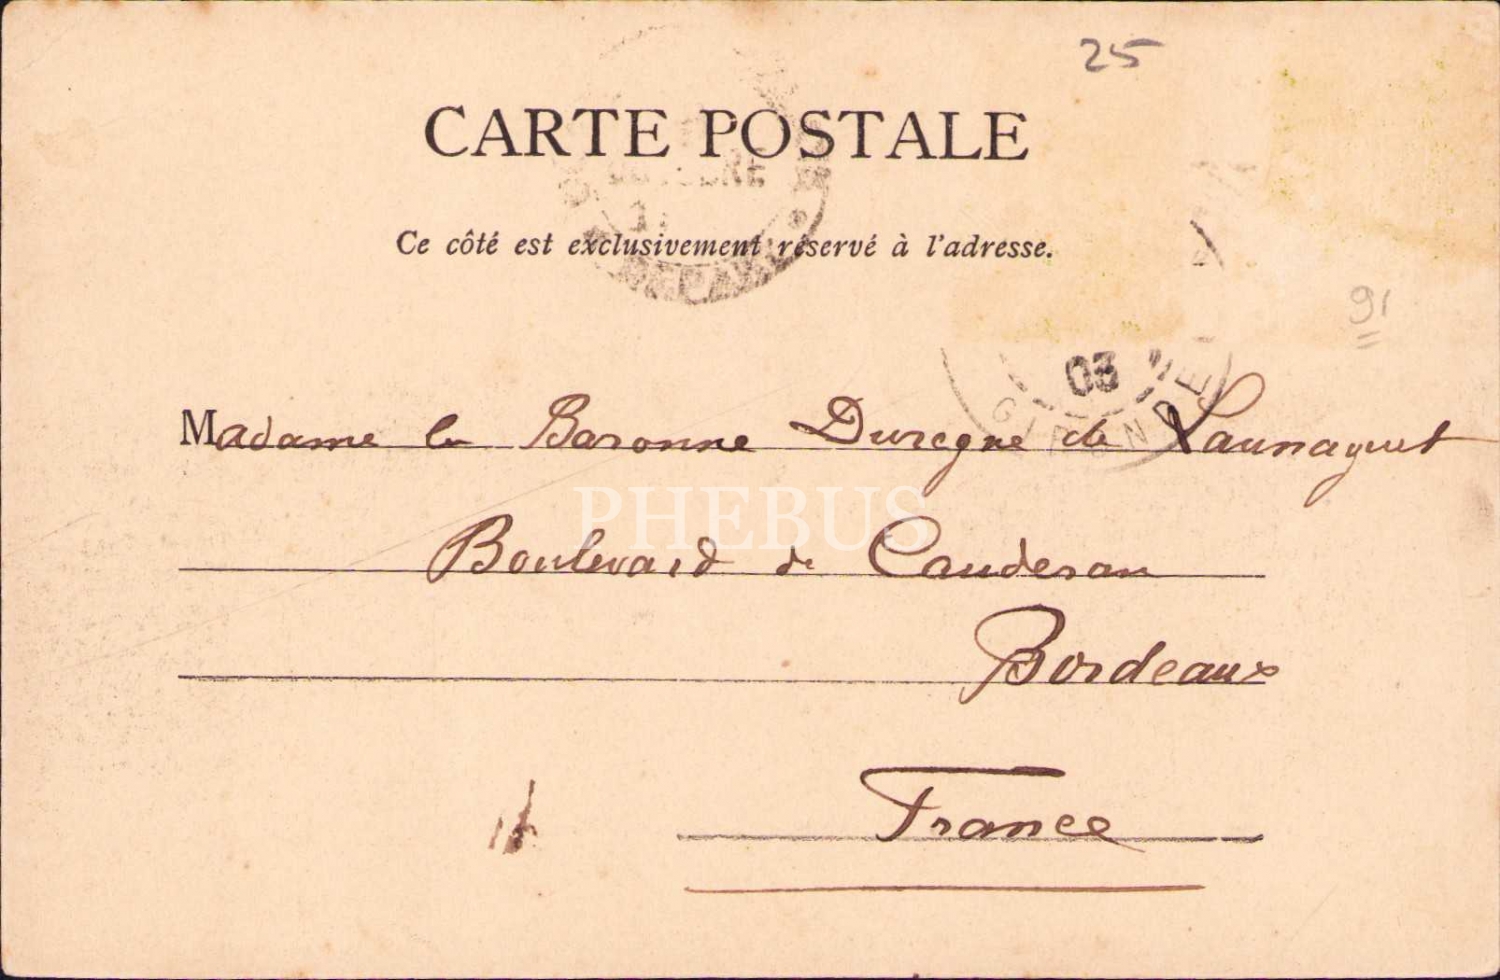 25
CARTE POSTALE
Ce côté est exclusivement réservé à l'adresse.
91
03
GIRONDE
Madame la Baronne Duregne de Launaguet
PHEBUS
Boulevard de Cauderan
Bordeaux
France